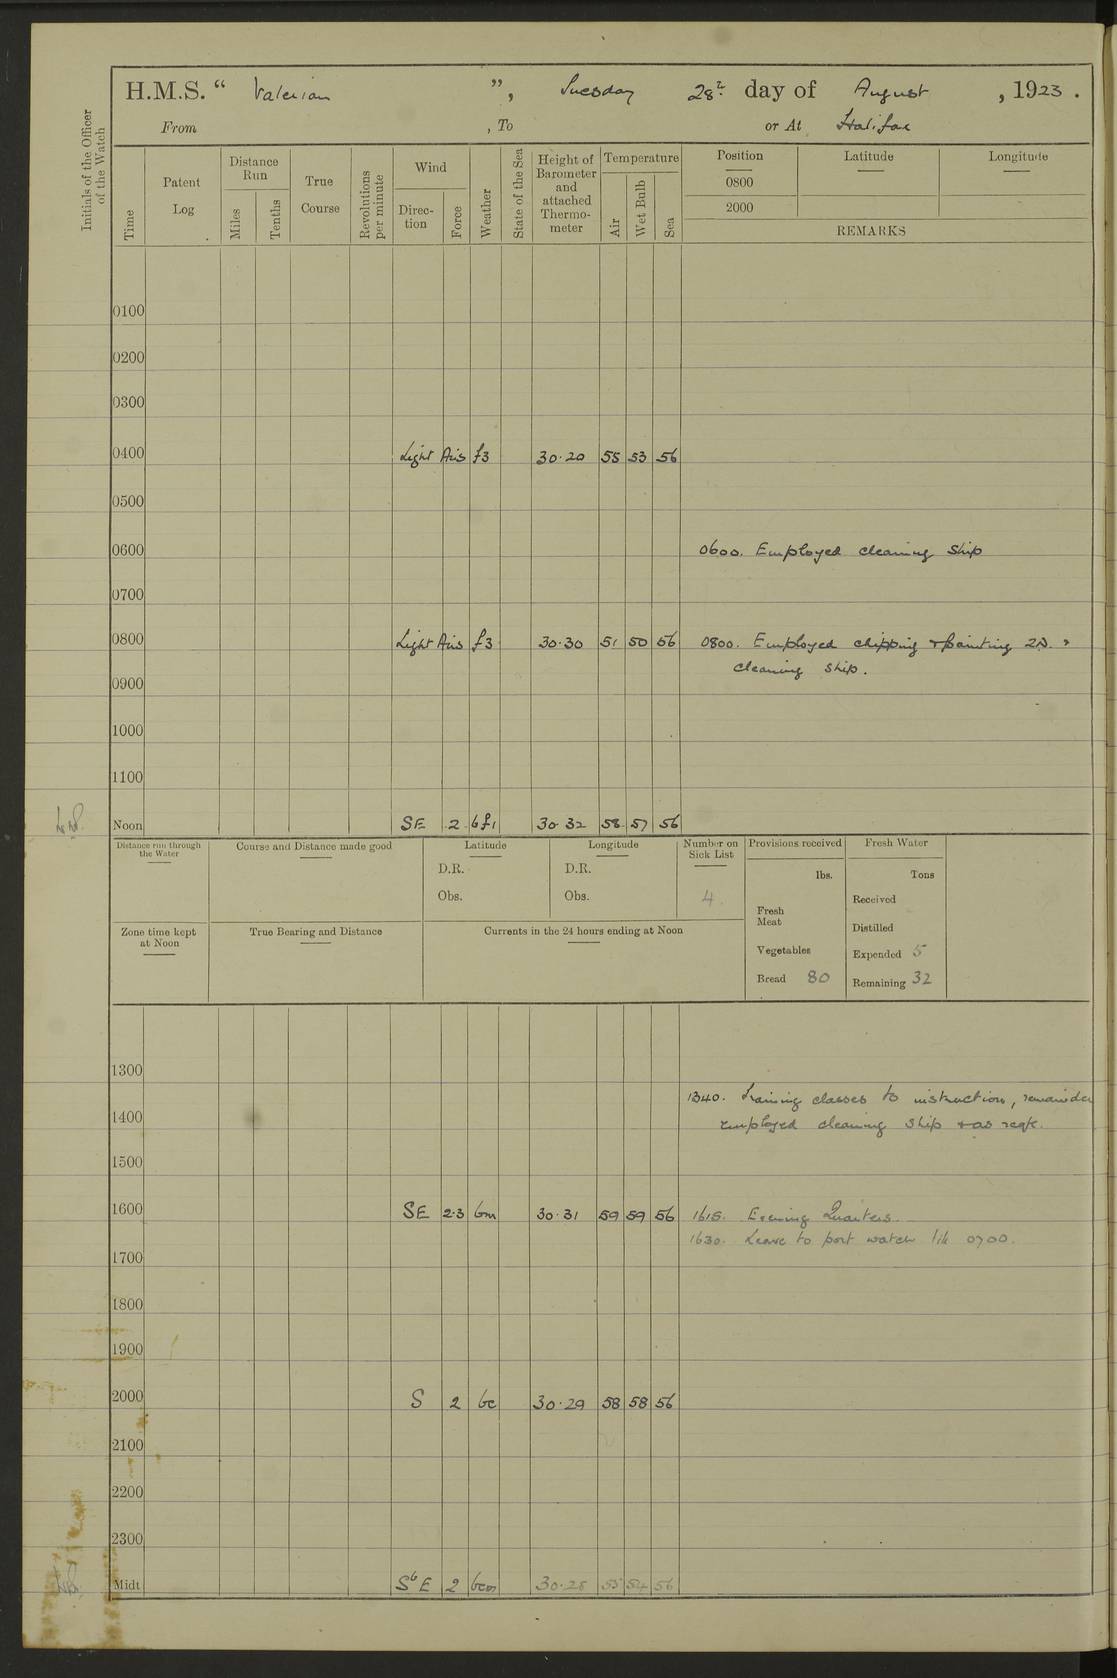 H.M.S. “ Valerian ”, Tuesday 28th day of August , 1923 .
From , To or At Halifax
Initials of the Officer of the Watch
Time
Patent Log
Distance Run
Miles
Tenths
True Course
Revolutions per minute
Wind
Direc-tion
Force
Weather
State of the Sea
Height of Barometer and attached Thermo-meter
Temperature
Air
Wet Bulb
Sea
Position Latitude Longitude
0800
2000
REMARKS
0100
0200
0300
0400 Light Airs f3 30.20 55 53 56
0500
0600 0600. Employed cleaning ship
0700
0800 Light Airs f3 30.30 51 50 56 0800. Employed chipping + painting
cleaning ship.
0900
1000
1100
Noon SE 2 bf1 30.32 58 57 56
Distance run through the Water
Course and Distance made good
Latitude
D.R.
Obs.
Longitude
D.R.
Obs.
Number on Sick List
4
Provisions received
lbs.
Fresh Meat
Vegetables
Bread 80
Fresh Water
Tons
Received
Distilled
Expended 5
Remaining 32
Zone time kept at Noon
True Bearing and Distance
Currents in the 24 hours ending at Noon
1300
1340. Training classes to instruction, remainder
1400 employed cleaning ship + as req.
1500
1600 SE 2.3 bm 30.31 59 59 56 1615. Evening Quarters.
1630. Leave to port watch till 0700.
1700
1800
1900
2000 S 2 bc 30.29 58 58 56
2100
2200
2300
Midt SbE 2 bcm 30.28 55 54 56